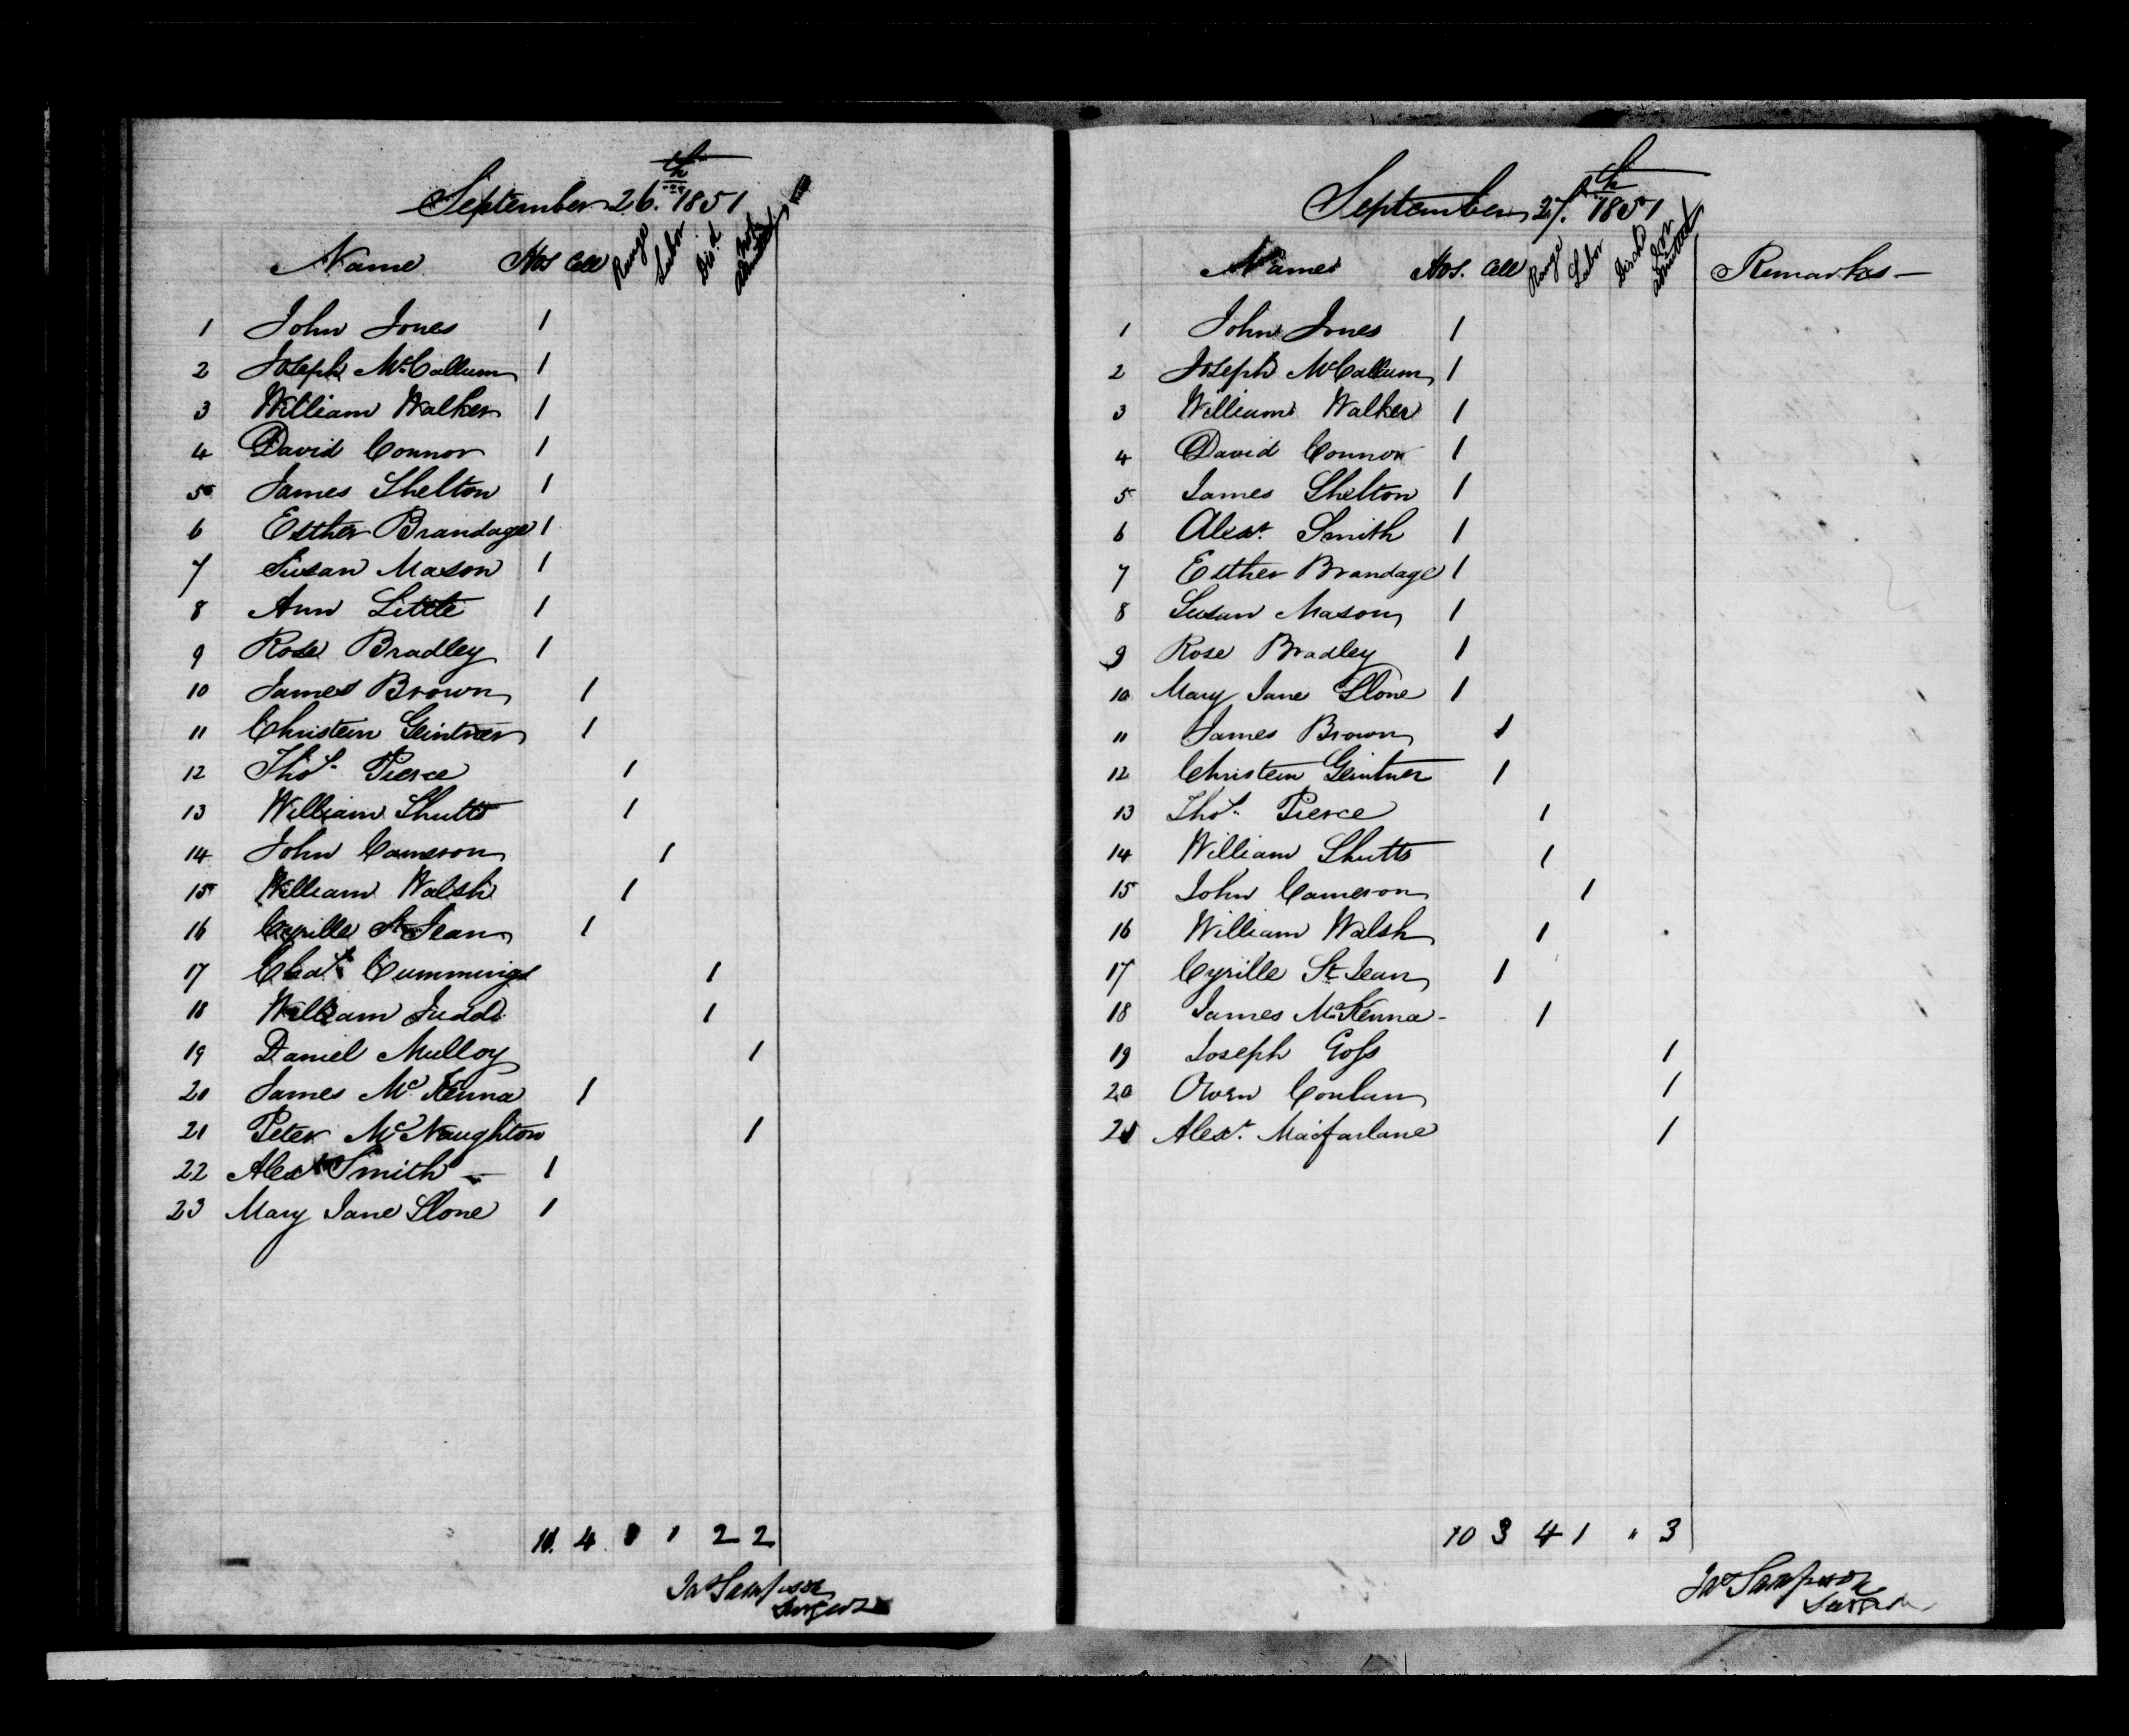 September 26.th 1851
Name Hos Cell Range Labor Dis.d Not Admitted
1 John Jones 1
2 Joseph McCallum 1
3 William Walker 1
4 David Connor 1
5 James Shelton 1
6 Esther Brandage 1
7 Susan Mason 1
8 Ann Little 1
9 Rose Bradley 1
10 James Brown 1
11 Christein Geintner 1
12 Thos. Pierce 1
13 William Shutts 1
14 John Cameron 1
15 William Walsh 1
16 Cyrille St Jean 1
17 Chas. Cummings 1
18 William Judd 1
19 Daniel Mulloy 1
20 James McKenna 1
21 Peter McNaughton 1
22 Alexr Smith — 1
23 Mary Jane Slone 1
4 1 2 2
Jas Sampson
Surgeon
September 27.th 1851
Names Hos. Cell Range Labor Disch Not Admitted Remarks —
1 John Jones 1
2 Joseph McCallum 1
3 William Walker 1
4 David Connor 1
5 James Shelton 1
6 Alexr. Smith 1
7 Esther Brandage 1
8 Susan Mason 1
9 Rose Bradley 1
10 Mary Jane Slone 1
11 James Brown 1
12 Christein Geintner 1
13 Thos. Pierce 1
14 William Shutts 1
15 John Cameron 1
16 William Walsh 1
17 Cyrille St Jean 1
18 James McKenna - 1
19 Joseph Goss 1
20 Owen Conlan 1
21 Alexr. Macfarlane 1
10 3 4 1 " 3
Jas Sampson
Surgeon